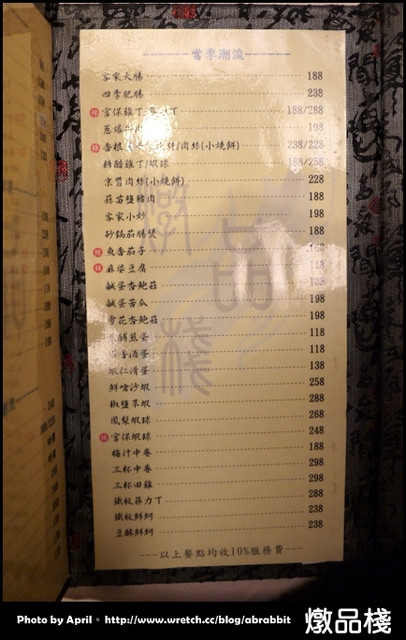 當季潮流
客家大腸 188
四季肥腸 238
辣 宮保雞丁 188/288
蔥爆 198
辣 香根 肉絲(小燒餅) 238/228
糖醋雞丁/蝦球 188/258
京醬肉絲(小燒餅) 228
蒜苗鹽豬肉 188
客家小炒 198
砂鍋茄腸煲 188
辣 魚香茄子 168
辣 麻婆豆腐 118
鹹蛋杏鮑菇 138
鹹蛋苦瓜 198
雪花杏鮑菇 198
煎蛋 118
酒蛋 118
蝦仁滑蛋 138
鮮嗆沙蝦 258
椒鹽草蝦 288
鳳梨蝦球 268
辣 宮保蝦球 248
梅汁中卷 188
三杯中卷 298
三杯田雞 298
鐵板菲力丁 288
鐵板鮮蚵 238
豆酥鮮蚵 238
以上餐點均收10%服務費
燉品棧
Photo by April。http://www.wretch.cc/blog/abrabbit 燉品棧